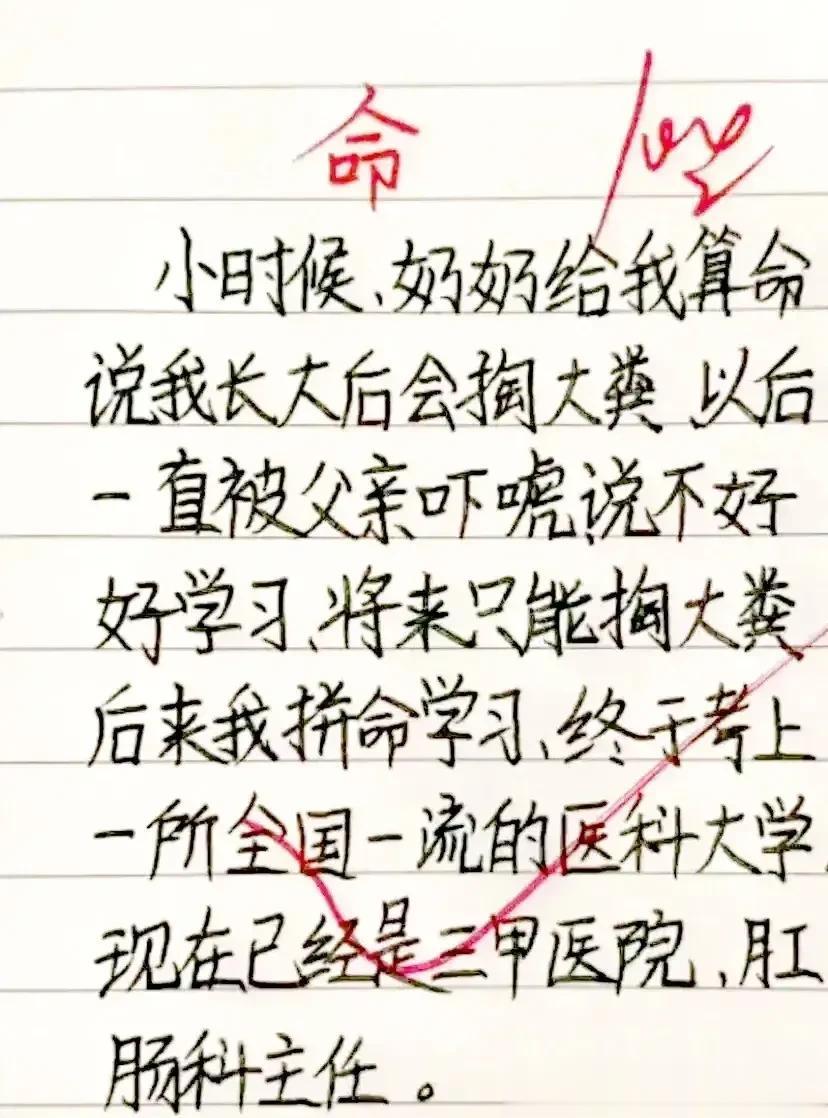 命
小时候、奶奶给我算命
说我长大后会掏大粪 以后
一直被父亲吓唬,说不好
好学习、将来只能掏大粪
后来我拼命学习、终于考上
一所全国一流的医科大学.
现在已经是三甲医院、肛
肠科主任。